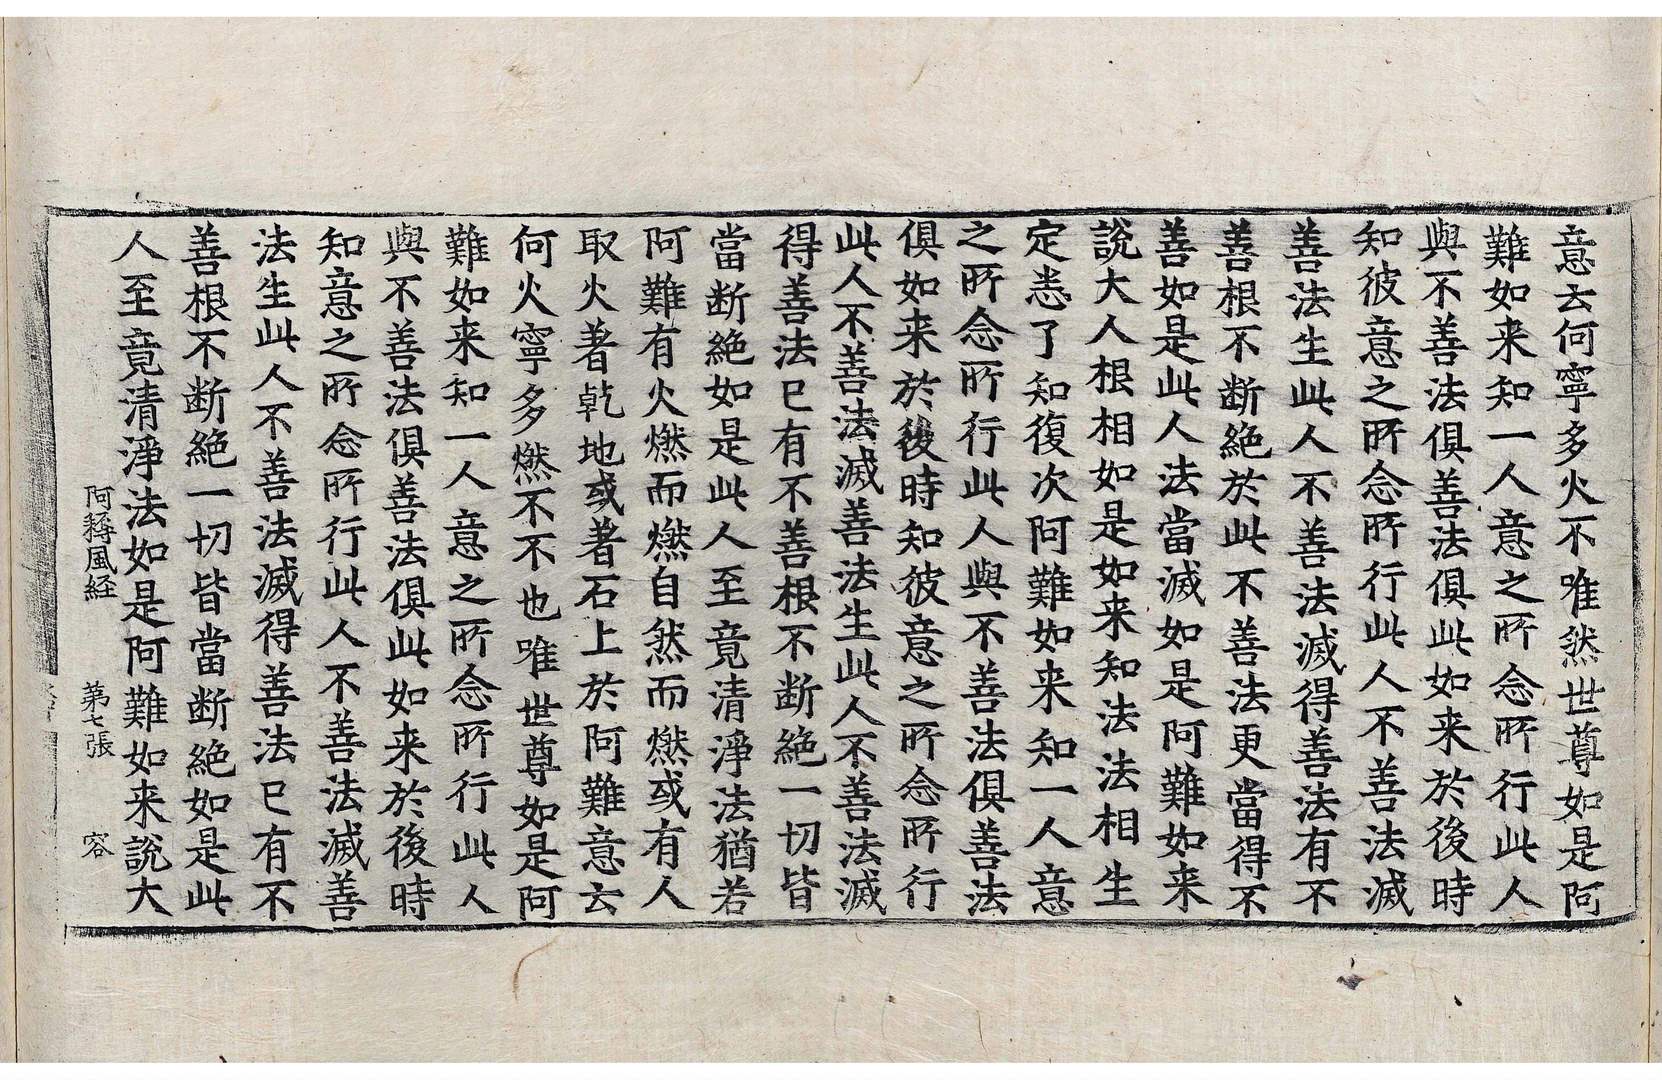 意云何寧多火不唯然世尊如是阿
難如来知一人意之所念所行此人
與不善法俱善法俱此如来於後時
知彼意之所念所行此人不善法滅
善法生此人不善法滅得善法有不
善根不断絶於此不善法更當得不
善如是此人法當滅如是阿難如来
說大人根相如是如来知法法相生
定悉了知復次阿難如来知一人意
之所念所行此人與不善法俱善法
俱如来於後時知彼意之所念所行
此人不善法滅善法生此人不善法滅
得善法已有不善根不断絶一切皆
當断絶如是此人至竟清淨法猶若
阿難有火燃而燃自然而燃或有人
取火著乾地或著石上於阿難意云
何火寧多燃不不也唯世尊如是阿
難如来知一人意之所念所行此人
與不善法俱善法俱此如来於後時
知意之所念所行此人不善法滅善
法生此人不善法滅得善法已有不
善根不断絶一切皆當断絶如是此
人至竟清淨法如是阿難如来說大
阿㝹風経 第七張 容